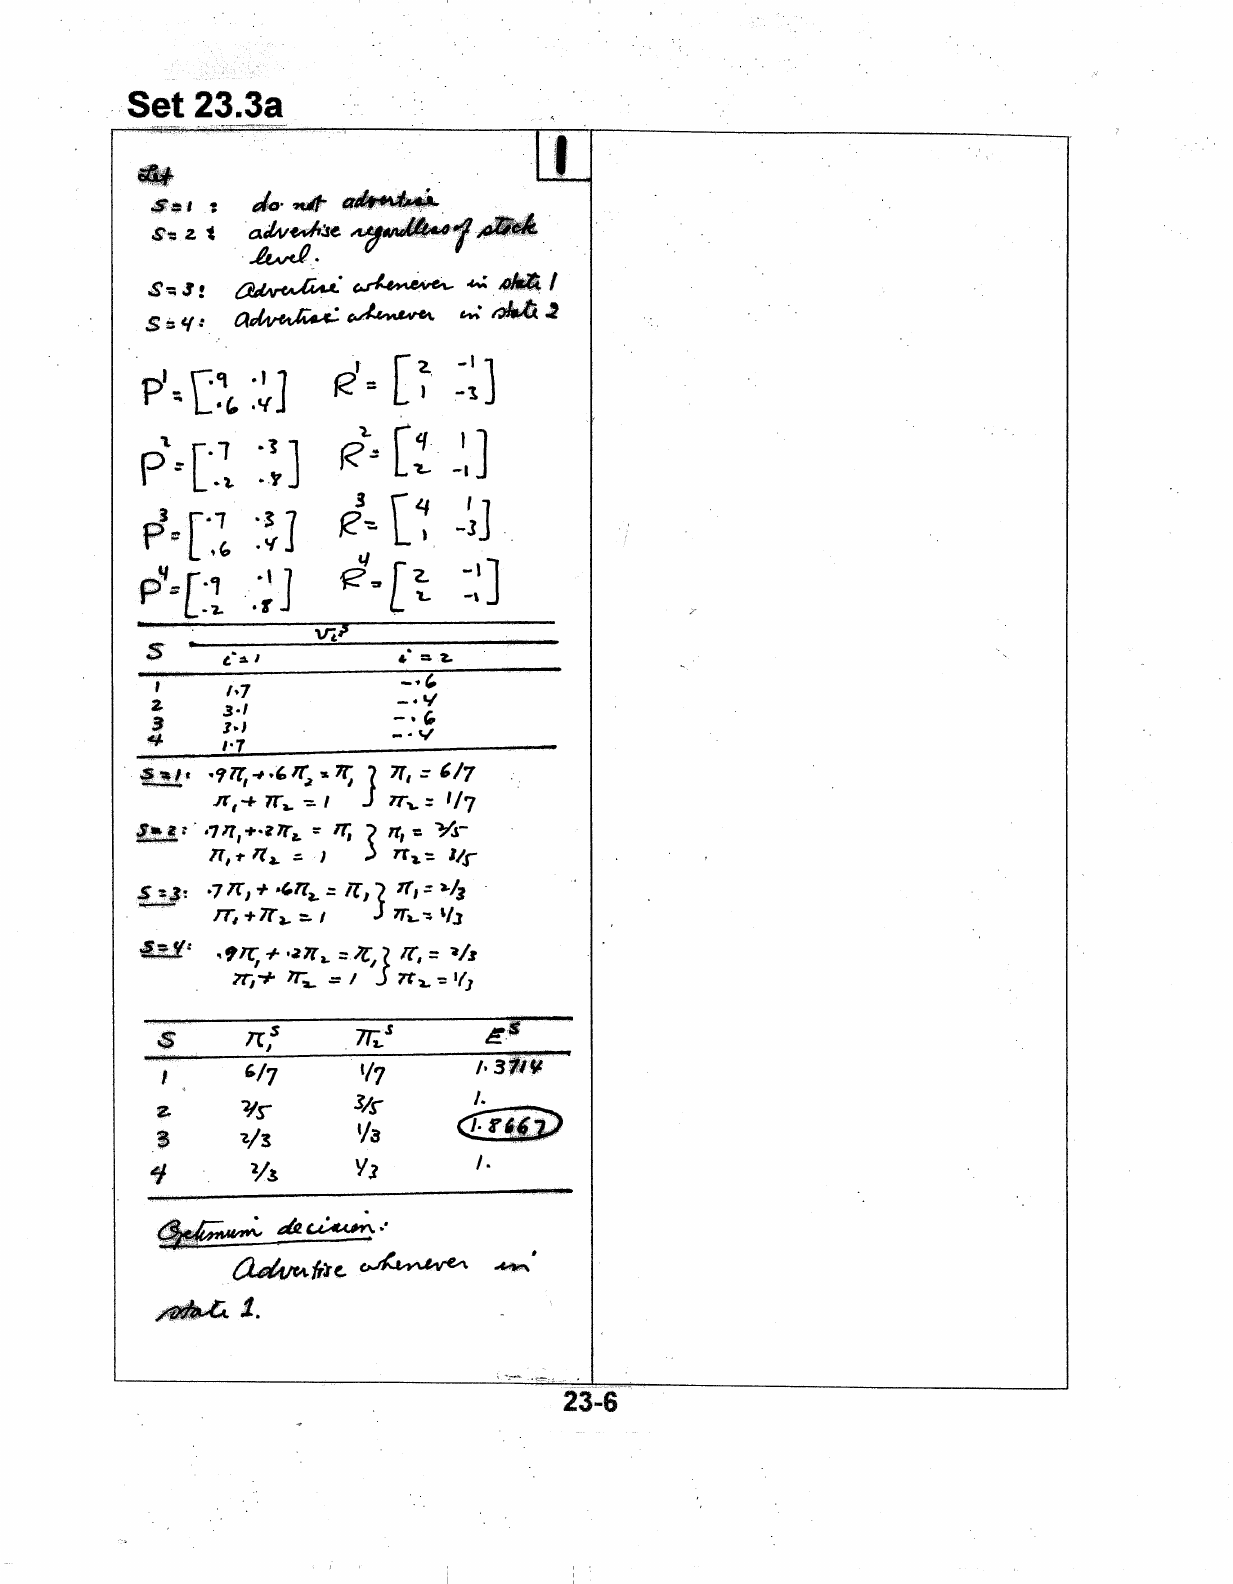 Set 23.3a
1
Let
S=1 : do not advertise
S=2 : advertise regardless of stock
level.
S=3: Advertise whenever in state 1
S=4: Advertise whenever in state 2
P¹ = [.9 .1; .6 .4] R¹ = [2 -1; 1 -3]
P² = [.7 .3; .2 .8] R² = [4 1; 2 -1]
P³ = [.7 .3; .6 .4] R³ = [4 1; 1 -3]
P⁴ = [.9 .1; .2 .8] R⁴ = [2 -1; 2 -1]
vᵢˢ
S i=1 i=2
1 1.7 -.6
2 3.1 -.4
3 3.1 -.6
4 1.7 -.4
S=1: .9π₁+.6π₂=π₁ } π₁ = 6/7
π₁+π₂ = 1 π₂ = 1/7
S=2: .7π₁+.2π₂ = π₁ } π₁ = 2/5
π₁+π₂ = 1 π₂ = 3/5
S=3: .7π₁+.6π₂ = π₁ } π₁ = 2/3
π₁+π₂ = 1 π₂ = 1/3
S=4: .9π₁+.2π₂ = π₁ } π₁ = 2/3
π₁+π₂ = 1 π₂ = 1/3
S π₁ˢ π₂ˢ Eˢ
1 6/7 1/7 1.3714
2 2/5 3/5 1.
3 2/3 1/3 1.8667
4 2/3 1/3 1.
Optimum decision:
Advertise whenever in
state 1.
23-6